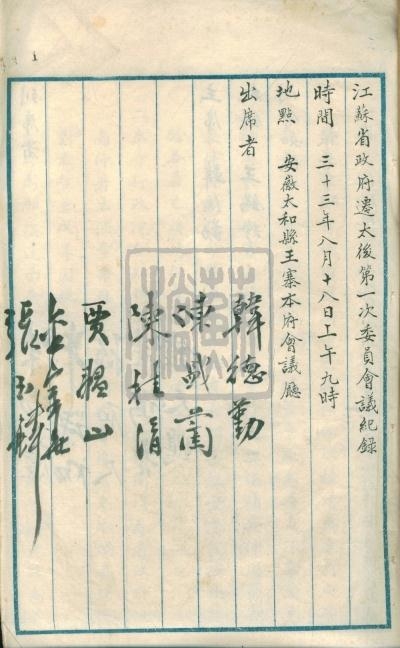 江蘇省政府遷太後第一次委員會議紀錄
時間 三十三年八月十八日上午九時
地點 安徽太和縣王寨本府會議廳
出席者
韓德勤
陳桂清
賈韞山
張玉麟